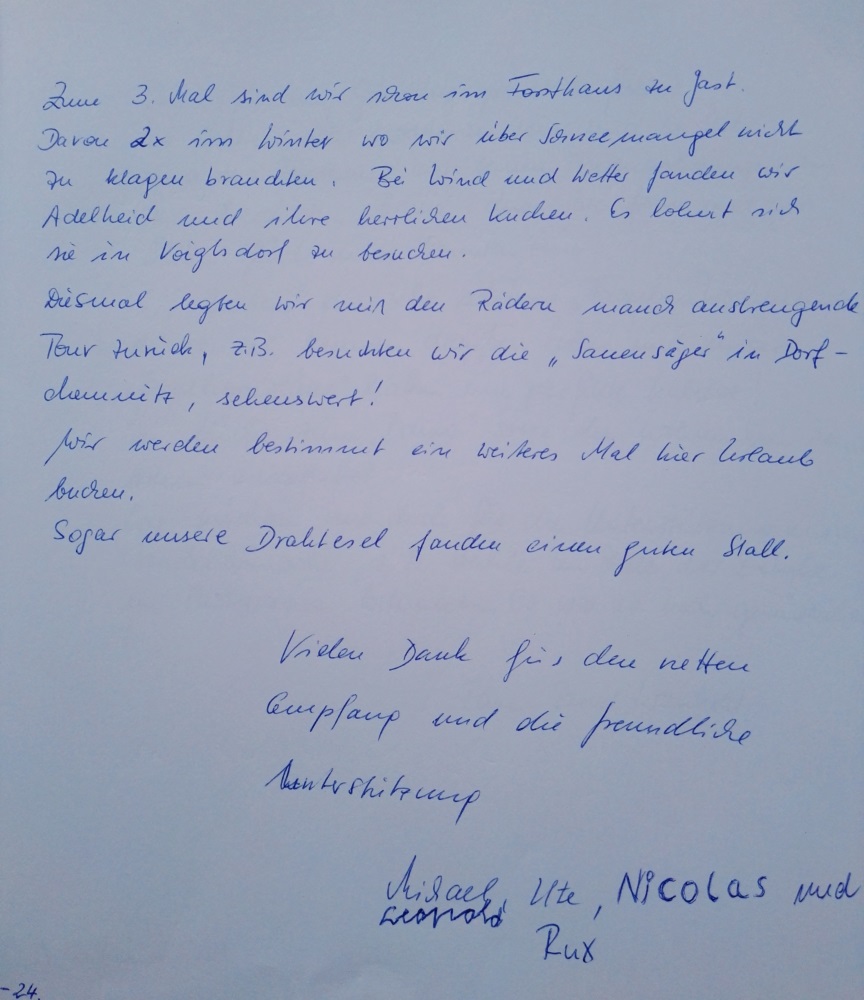 Zum 3. Mal sind wir schon im Forsthaus zu Gast.
Davon 2x im Winter wo wir über Schneemangel nicht
zu klagen brauchten. Bei Wind und Wetter fanden wir
Adelheid und ihre herrlichen Kuchen. Es lohnt sich
sie in Voigtsdorf zu besuchen.
Diesmal legten wir mit den Rädern manch anstrengende
Tour zurück, z.B. besuchten wir die „Sauensäger" in Dorf-
chemnitz, sehenswert!
Wir werden bestimmt ein weiteres Mal hier Urlaub
buchen.
Sogar unsere Drahtesel fanden einen guten Stall.
Vielen Dank für den netten
Empfang und die freundliche
Unterstützung
Michael, Ute, Nicolas und
Leopold
Rux
-24.